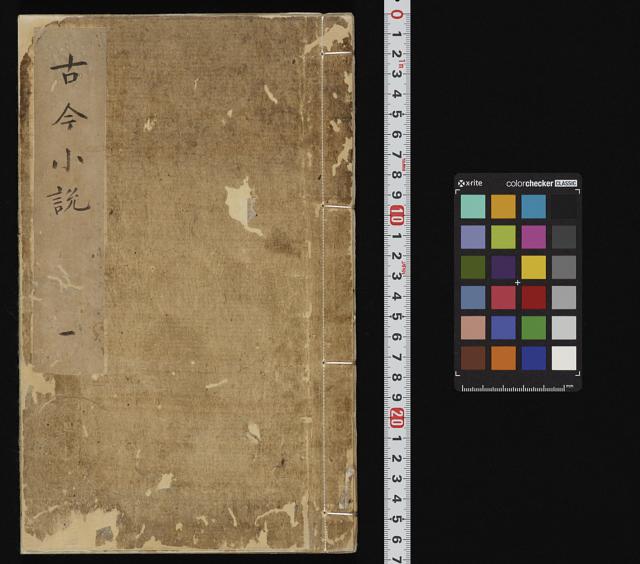 古今小説
一
0 1 2 3 4 5 6 7 8 9 10 1 2 3 4 5 6 7 8 9 20 1 2 3 4 5 6 7
x-rite
colorchecker CLASSIC
mm